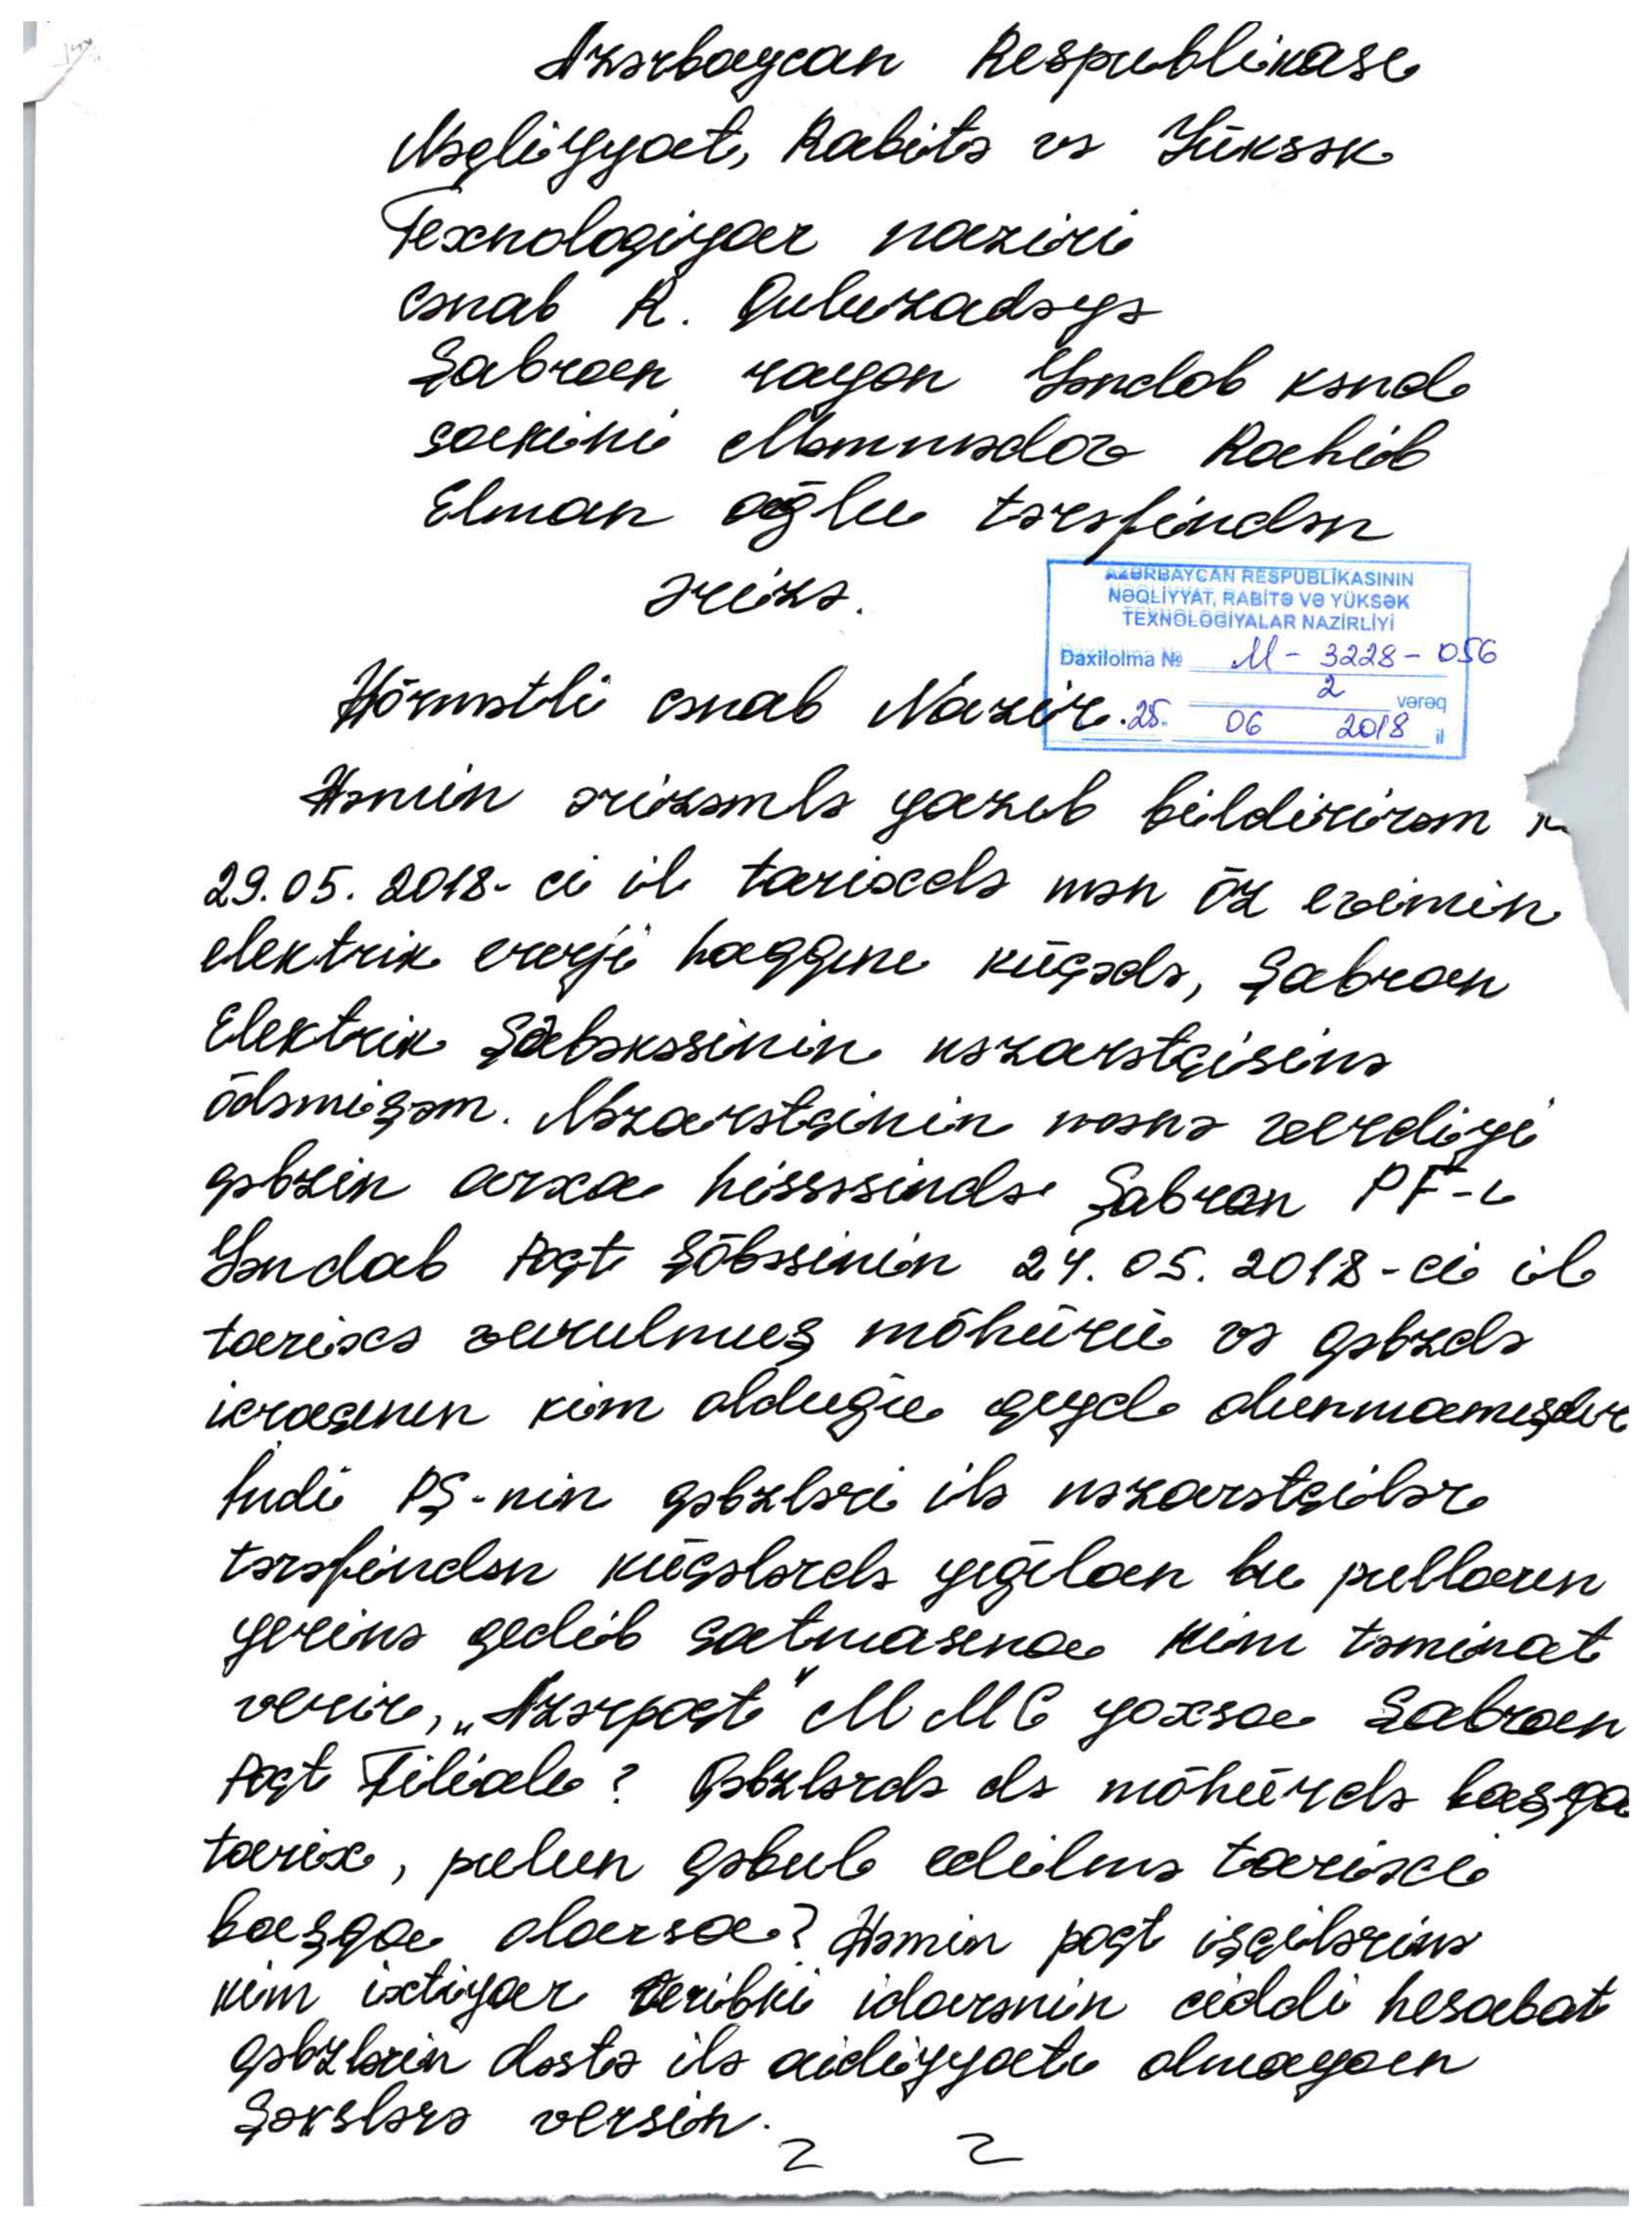 Azərbaycan Respublikası
Nəqliyyat, Rabitə və Yüksək
Texnologiyar naziri
cənab R. Quluzadəyə
Şabran rayon Gəndob kənd
sakini Məmmədov Rahib
Elman oğlu tərəfindən
ərizə.
AZƏRBAYCAN RESPUBLİKASININ
NƏQLİYYAT, RABİTƏ VƏ YÜKSƏK
TEXNOLOGİYALAR NAZİRLİYİ
Daxilolma № M - 3228 - 056
2 vərəq
25. 06 2018 il
Hörmətli cənab Nazir.
Həmin ərizəmlə yazıb bildirirəm
29.05.2018-ci il tarixdə mən öz evimin
elektrik enerji haqqını küçədə, Şabran
Elektrik Şəbəkəsinin nəzarətçisinə
ödəmişəm. Nəzarətçinin mənə verdiyi
qəbzin arxa hissəsində Şabran PF-ı
Gəndab Poçt Şöbəsinin 24.05.2018-ci il
tarixə vurulmuş möhürü və qəbzdə
icraçının kim olduğu qeyd olunmamışdır
İndi PŞ-nin qəbzləri ilə nəzarətçilər
tərəfindən küçələrdə yığılan bu pulların
yerinə gedib çatmasına kim təminat
verir, "Azərpoçt" MMC yoxsa Şabran
Poçt Filialı? Qəbzlərdə də möhürdə başqa
tarix, pulun qəbul edilmə tarixi
başqa olarsa? Həmin poçt işçilərinə
kim ixtiyar veribki idarənin ciddi hesabat
qəbzlərin dəstə ilə aidiyyatı olmayan
Şəxslərə versin.
2 2